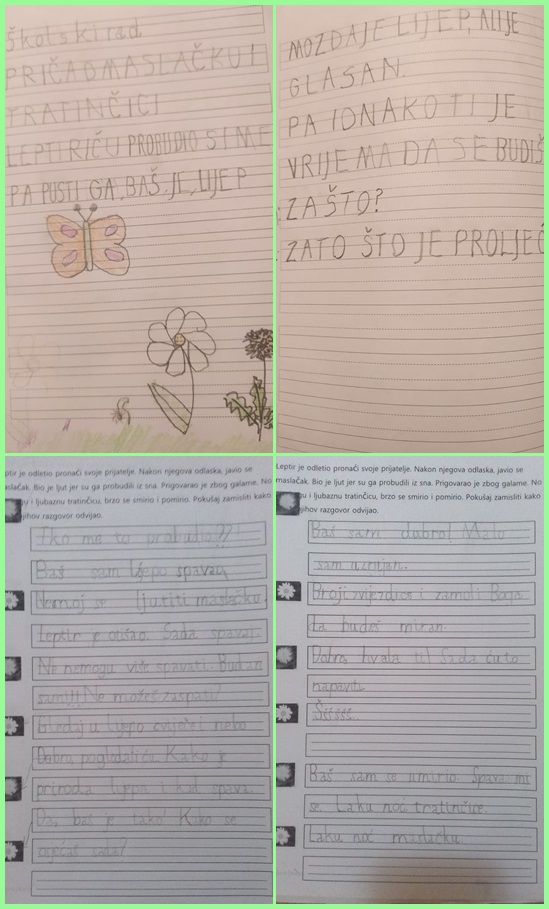 Školski rad
PRIČA O MASLAČKU I
TRATINČICI
LEPTIRIĆU PROBUDIO SI ME
PA PUSTI GA, BAŠ JE LIJEP
MOŽDA JE LIJEP, NIJE
GLASAN.
PA IONAKO TI JE
VRIJEMA DA SE BUDIŠ
ZAŠTO?
ZATO ŠTO JE PROLJEĆ
ptir je odletio pronaći svoje prijatelje. Nakon njegova odlaska, javio se
aslačak. Bio je ljut jer su ga probudili iz sna. Prigovarao je zbog galame. No
u i ljubaznu tratinčicu, brzo se smirio i pomirio. Pokušaj zamisliti kako
jihov razgovor odvijao.
Tko me to probudio??!
Baš sam lijepo spavao,
Nemoj se ljutiti maslačku.
Leptir je otišao. Sada spavaj.
Ne nemogu više spavati. Budan
sam!!! Ne možeš zaspati?
Gledaj u lijepo cvijeće i nebo
Dobro pogledati ću. Kako je
priroda lijepa i kad spava.
Da, baš je tako! Kako se
osjećaš sada?
Leptir je odletio pronaći svoje prijatelje. Nakon njegova odlaska, javio se
maslačak. Bio je ljut jer su ga probudili iz sna. Prigovarao je zbog galame. No
u i ljubaznu tratinčicu, brzo se smirio i pomirio. Pokušaj zamisliti kako
jihov razgovor odvijao.
Baš sam dobro! Malo
sam
Broji zvijezdice i zamoli Boga
da budeš miran.
Dobro, hvala ti! Sada ću to
napraviti.
Ššššš.
Baš sam se umirio. Spava mi
se. Laku noć tratinčice.
Laku noć maslačku.